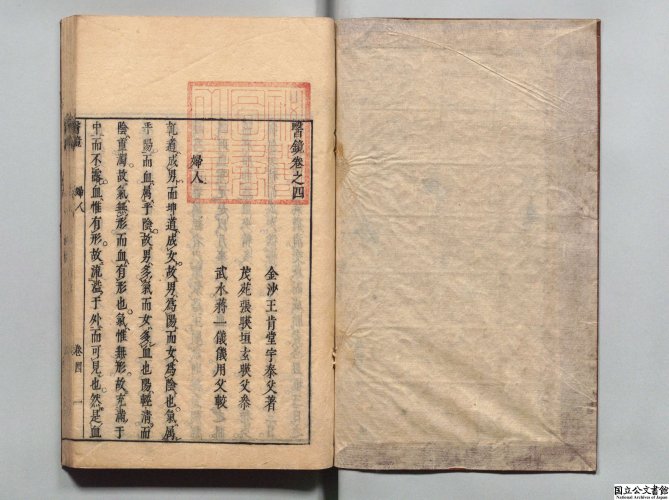 醫鏡卷之四
金沙王肯堂宇泰父著
茂苑張𬋖垣玄𬋖父叅
武水蔣一儀儀用父較
婦人
乾道成男而坤道成女故男爲陽而女爲陰也氣属
乎陽而血属乎陰故男多氣而女多血也陽輕清而
陰重濁故氣無形而血有形也氣惟無形故充滿于
中而不露血惟有形故流溢于外而可見也然是血
醫鏡
婦人
卷四
一
国立公文書館
National Archives of Japan